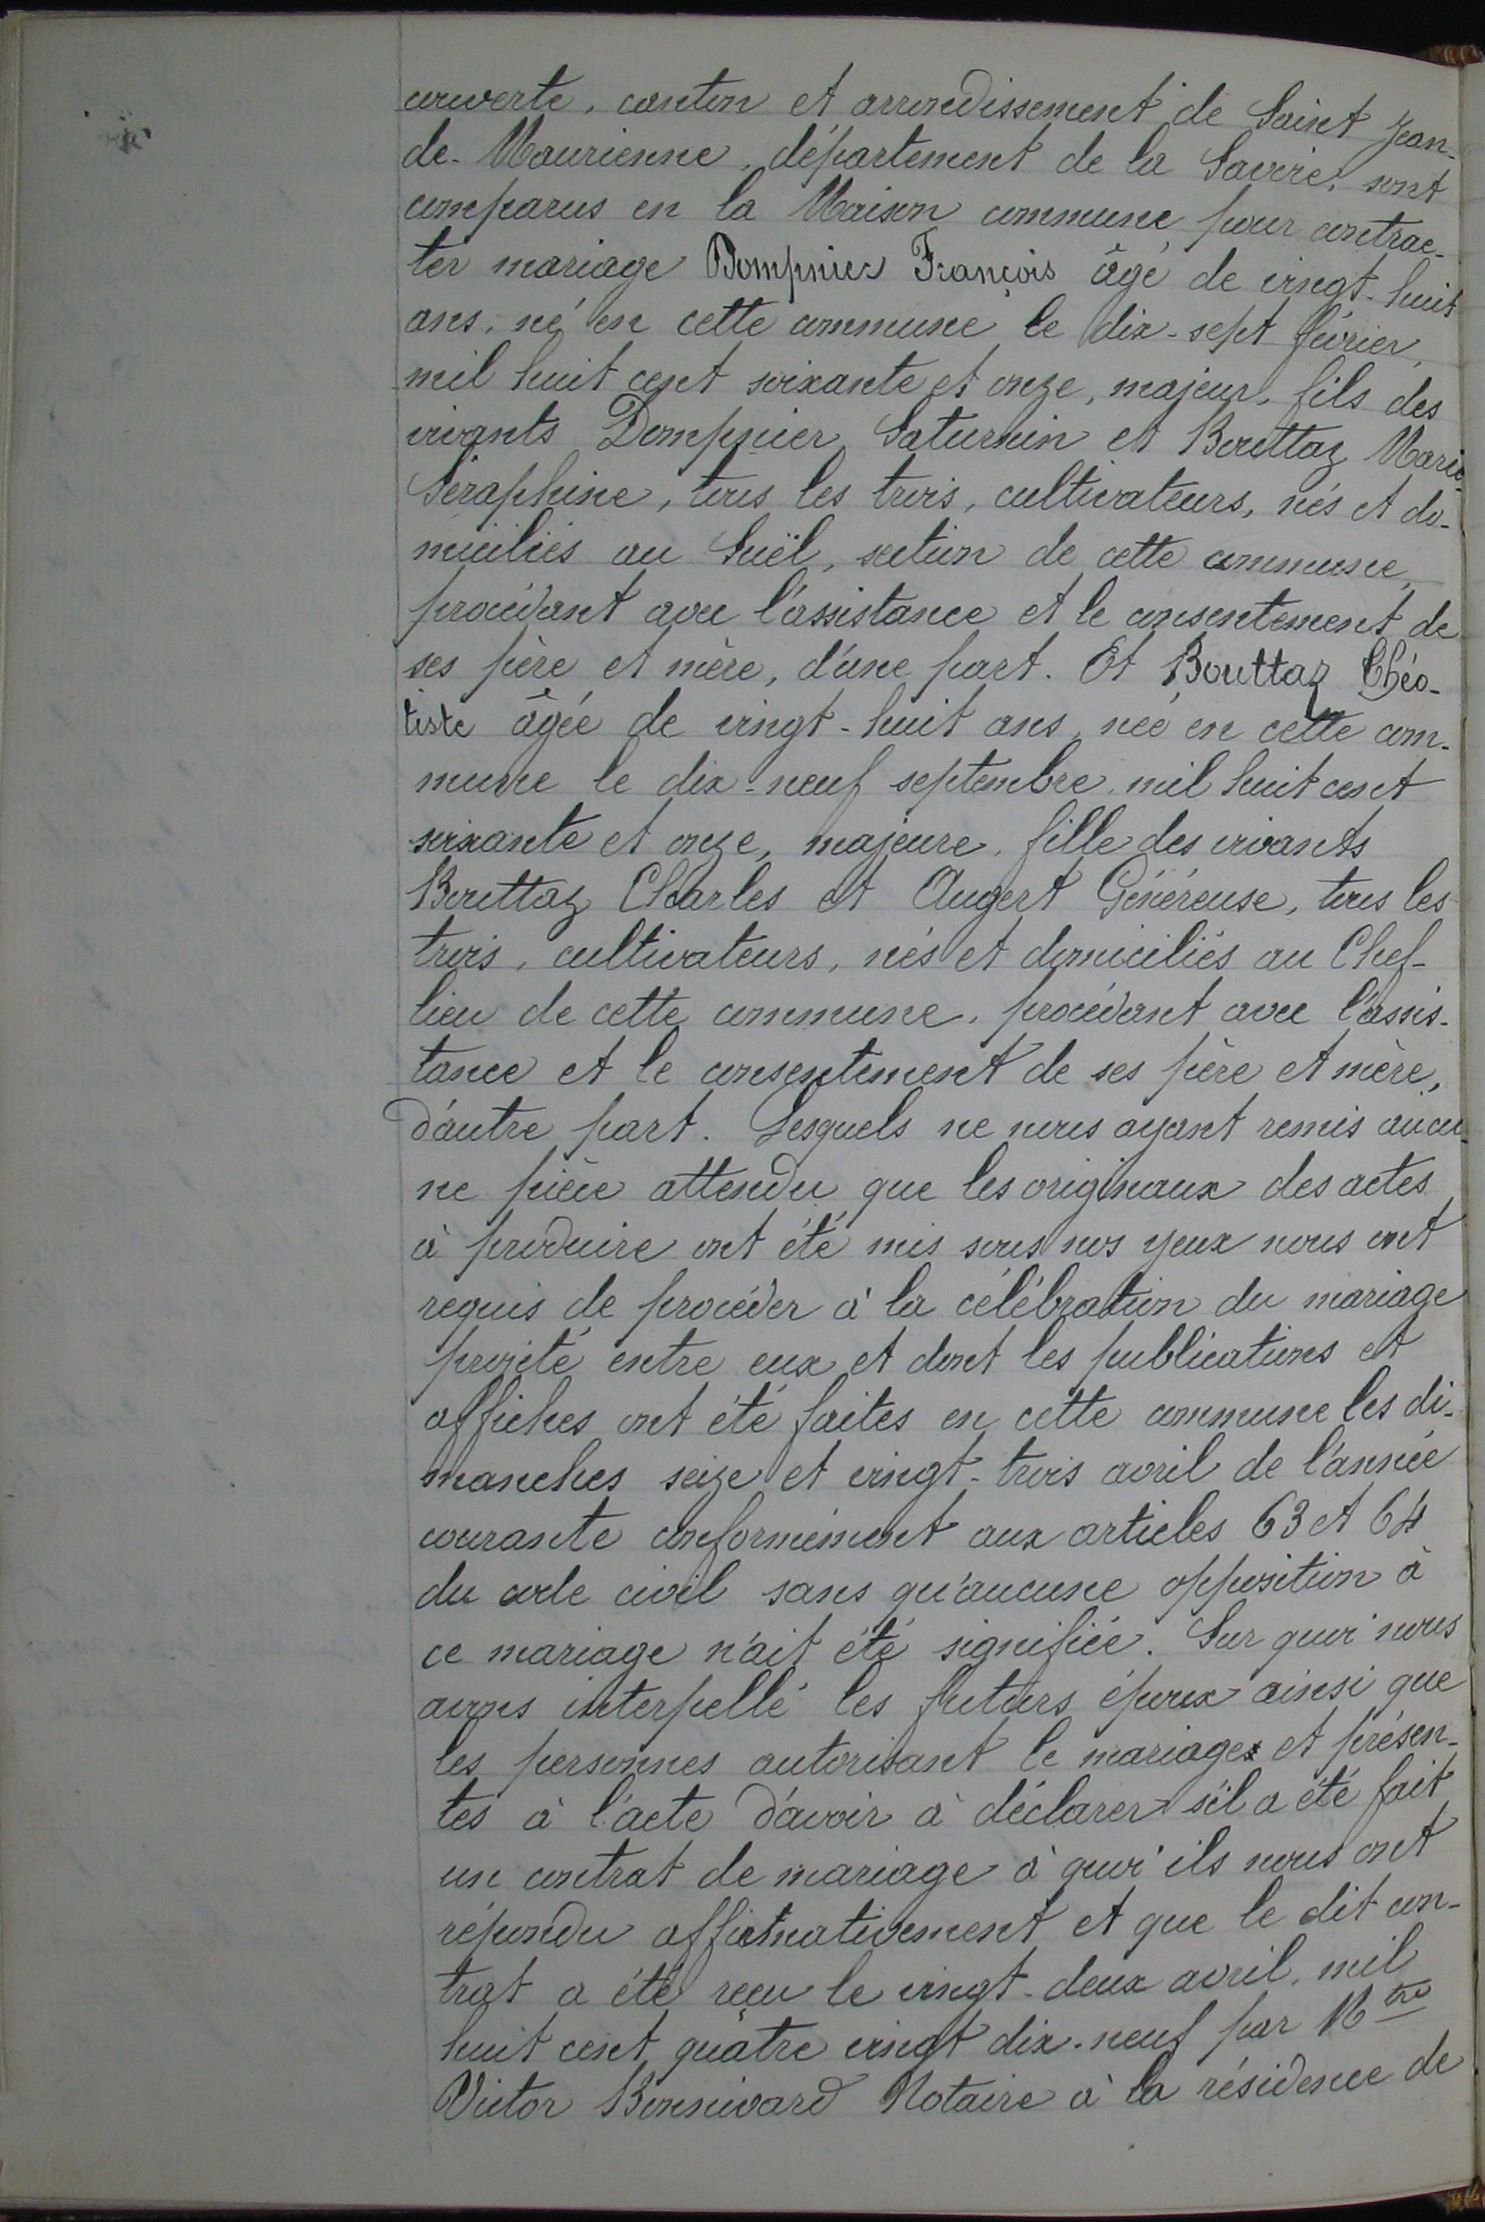 couverte, canton et arrondissement de Saint Jean-
de-Maurienne, département de la Savoie, sont
comparus en la Maison commune pour contrac-
ter mariage Dompnier François âgé de vingt-huit
ans, né en cette commune le dix-sept février,
mil huit cent soixante et onze, majeur, fils des
vivants Dompnier Saturnin et Bouttaz Marie-
Séraphine, tous les trois, cultivateurs, nés et do-
miciliés au Suël, section de cette commune,
procédant avec l'assistance et le consentement de
ses père et mère, d'une part. Et Bouttaz Théo-
tiste âgée de vingt-huit ans, née en cette com-
mune le dix-neuf septembre mil huit cent
soixante et onze, majeure, fille des vivants
Bouttaz Charles et Augert Généreuse, tous les
trois, cultivateurs, nés et domiciliés au Chef-
lieu de cette commune, procédant avec l'assis-
tance et le consentement de ses père et mère,
d'autre part. Lesquels ne nous ayant remis aucu-
ne pièce attendu que les originaux des actes
à produire ont été mis sous nos yeux nous ont
requis de procéder à la célébration du mariage
projeté entre eux et dont les publications et
affiches ont été faites en cette commune les di-
manches seize et vingt-trois avril de l'année
courante conformément aux articles 63 et 64
du code civil sans qu'aucune opposition à
ce mariage n'ait été signifiée. Sur quoi nous
avons interpellé les futurs époux ainsi que
les personnes autorisant le mariage et présen-
tes à l'acte d'avoir à déclarer s'il a été fait
un contrat de mariage à quoi ils nous ont
répondu affirmativement et que le dit con-
trat a été reçu le vingt-deux avril, mil
huit cent quatre vingt dix-neuf par Mtre
Victor Bonnivard Notaire à la résidence de